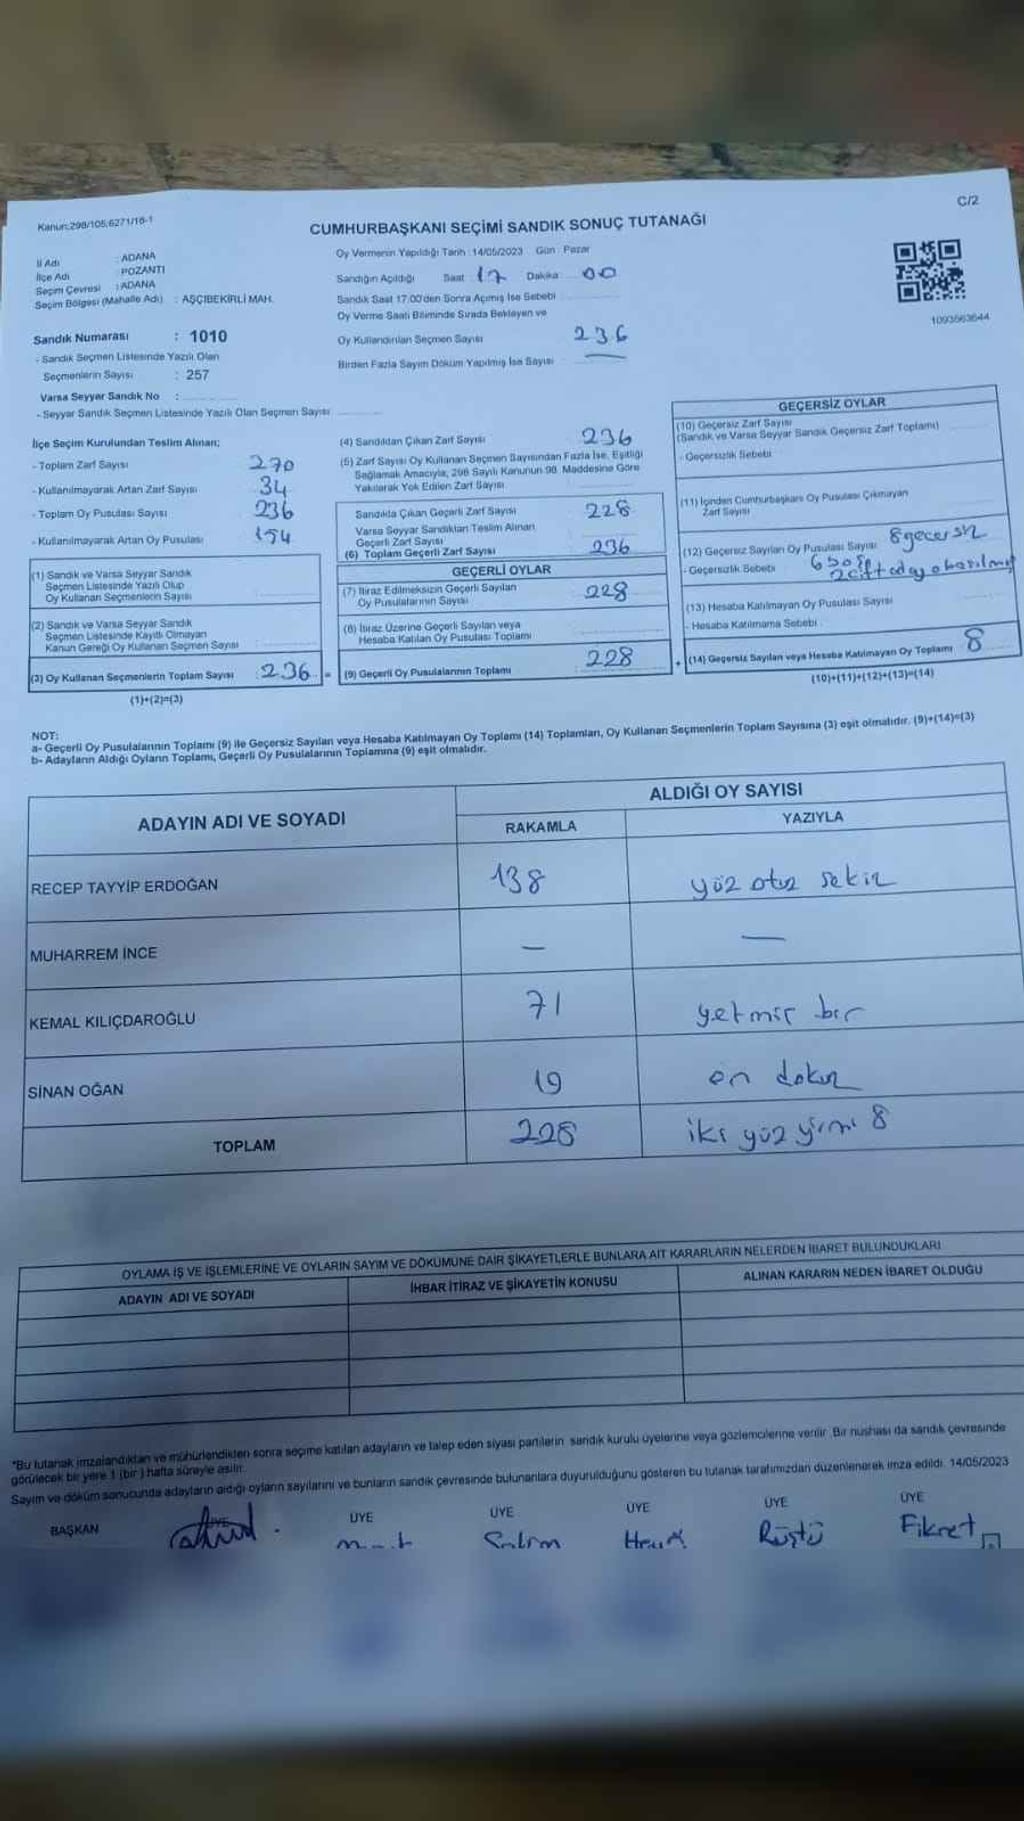 Kanun:298/105;6271/18-1
C/2
CUMHURBAŞKANI SEÇİMİ SANDIK SONUÇ TUTANAĞI
İl Adı : ADANA
İlçe Adı : POZANTI
Seçim Çevresi : ADANA
Seçim Bölgesi (Mahalle Adı) : AŞÇIBEKİRLİ MAH.
Sandık Numarası : 1010
- Sandık Seçmen Listesinde Yazılı Olan
Seçmenlerin Sayısı : 257
Varsa Seyyar Sandık No :
- Seyyar Sandık Seçmen Listesinde Yazılı Olan Seçmen Sayısı
Oy Vermenin Yapıldığı Tarih : 14/05/2023 Gün : Pazar
Sandığın Açıldığı Saat 17 Dakika 00
Sandık Saat 17:00'den Sonra Açmış İse Sebebi
Oy Verme Saati Bitiminde Sırada Bekleyen ve
Oy Kullandırılan Seçmen Sayısı 236
Birden Fazla Sayım Döküm Yapılmış İse Sayısı —
1093563644
İlçe Seçim Kurulundan Teslim Alınan;
- Toplam Zarf Sayısı 270
- Kullanılmayarak Artan Zarf Sayısı 34
- Toplam Oy Pusulası Sayısı 236
- Kullanılmayarak Artan Oy Pusulası
(1) Sandık ve Varsa Seyyar Sandık
Seçmen Listesinde Yazılı Olup
Oy Kullanan Seçmenlerin Sayısı
(2) Sandık ve Varsa Seyyar Sandık
Seçmen Listesinde Kayıtlı Olmayan
Kanun Gereği Oy Kullanan Seçmen Sayısı
(3) Oy Kullanan Seçmenlerin Toplam Sayısı : 236 =
(1)+(2)=(3)
(4) Sandıktan Çıkan Zarf Sayısı 236
(5) Zarf Sayısı Oy Kullanan Seçmen Sayısından Fazla İse, Eşitliği
Sağlamak Amacıyla, 298 Sayılı Kanunun 98. Maddesine Göre
Yakılarak Yok Edilen Zarf Sayısı
Sandıkta Çıkan Geçerli Zarf Sayısı 228
Varsa Seyyar Sandıktan Teslim Alınan
Geçerli Zarf Sayısı
(6) Toplam Geçerli Zarf Sayısı 236
GEÇERLİ OYLAR
(7) İtiraz Edilmeksizin Geçerli Sayılan
Oy Pusulalarının Sayısı 228
(8) İtiraz Üzerine Geçerli Sayılan veya
Hesaba Katılan Oy Pusulası Toplamı
(9) Geçerli Oy Pusulalarının Toplamı 228 +
GEÇERSİZ OYLAR
(10) Geçersiz Zarf Sayısı
(Sandık ve Varsa Seyyar Sandık Geçersiz Zarf Toplamı)
- Geçersizlik Sebebi
(11) İçinden Cumhurbaşkanı Oy Pusulası Çıkmayan
Zarf Sayısı
(12) Geçersiz Sayılan Oy Pusulası Sayısı 8 geçersiz
- Geçersizlik Sebebi
(13) Hesaba Katılmayan Oy Pusulası Sayısı
- Hesaba Katılmama Sebebi :
(14) Geçersiz Sayılan veya Hesaba Katılmayan Oy Toplamı 8
(10)+(11)+(12)+(13)=(14)
NOT:
a- Geçerli Oy Pusulalarının Toplamı (9) ile Geçersiz Sayılan veya Hesaba Katılmayan Oy Toplamı (14) Toplamları, Oy Kullanan Seçmenlerin Toplam Sayısına (3) eşit olmalıdır. (9)+(14)=(3)
b- Adayların Aldığı Oyların Toplamı, Geçerli Oy Pusulalarının Toplamına (9) eşit olmalıdır.
ADAYIN ADI VE SOYADI
ALDIĞI OY SAYISI
RAKAMLA YAZIYLA
RECEP TAYYİP ERDOĞAN 138 yüz otuz sekiz
MUHARREM İNCE — —
KEMAL KILIÇDAROĞLU 71 yetmiş bir
SİNAN OĞAN 19 on dokuz
TOPLAM 228 iki yüz yirmi 8
OYLAMA İŞ VE İŞLEMLERİNE VE OYLARIN SAYIM VE DÖKÜMÜNE DAİR ŞİKAYETLERLE BUNLARA AİT KARARLARIN NELERDEN İBARET BULUNDUKLARI
ADAYIN ADI VE SOYADI İHBAR İTİRAZ VE ŞİKAYETİN KONUSU ALINAN KARARIN NEDEN İBARET OLDUĞU
*Bu tutanak imzalandıktan ve mühürlendikten sonra seçime katılan adayların ve talep eden siyasi partilerin sandık kurulu üyelerine veya gözlemcilerine verilir. Bir nushası da sandık çevresinde
görülecek bir yere 1 (bir ) hafta süreyle asılır.
Sayım ve döküm sonucunda adayların aldığı oyların sayılarını ve bunların sandık çevresinde bulunanlara duyurulduğunu gösteren bu tutanak tarafımızdan düzenlenerek imza edildi. 14/05/2023
BAŞKAN ÜYE ÜYE ÜYE ÜYE ÜYE ÜYE
Rüştü Fikret